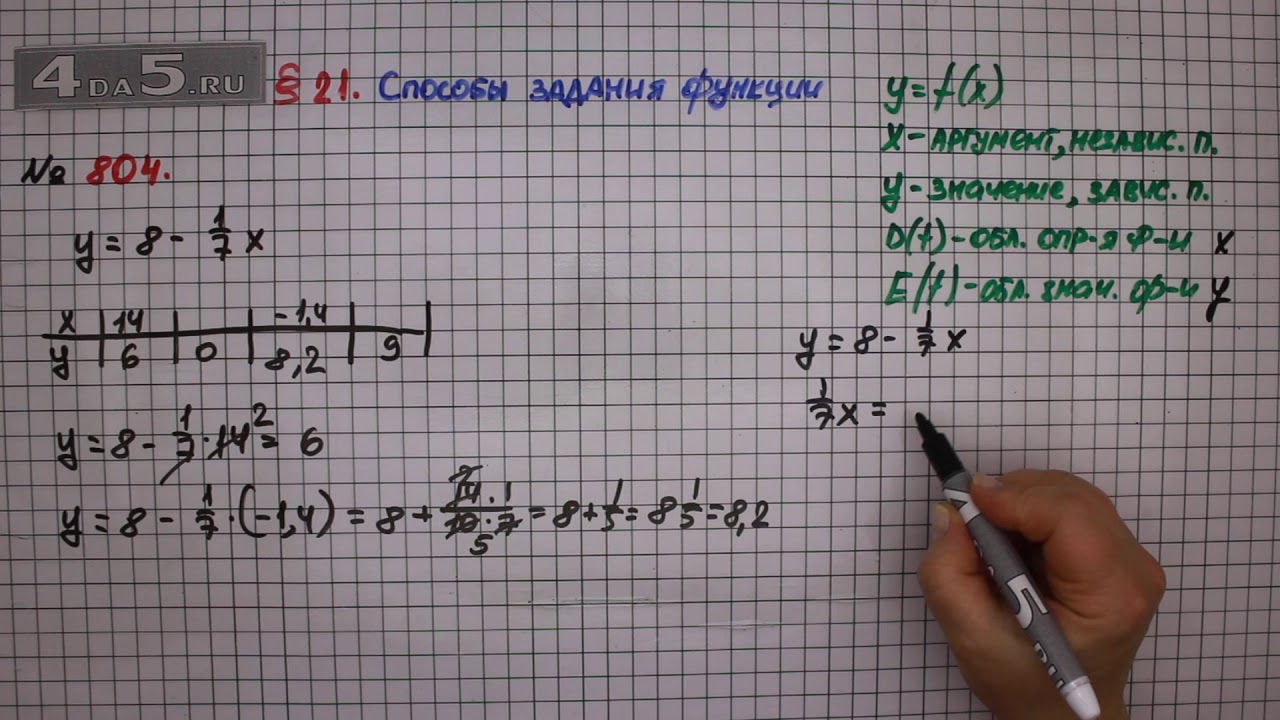 4DA5.RU
§ 21. Способы задания функции
№ 804.
y = 8 - 1/7 x
x | 14 | | -1,4 | |
y | 6 | 0 | 8,2 | 9 |
y = 8 - 1/7 · 14 2 = 6
y = 8 - 1/7 · (-1,4) = 8 + 14 2 · 1 / 10 5 · 7 = 8 + 1/5 = 8 1/5 = 8,2
y = f(x)
x - аргумент, независ. п.
y - значение, завис. п.
D(f) - обл. опр-я ф-и x
E(f) - обл. знач. ф-и y
y = 8 - 1/7 x
1/7 x =
5